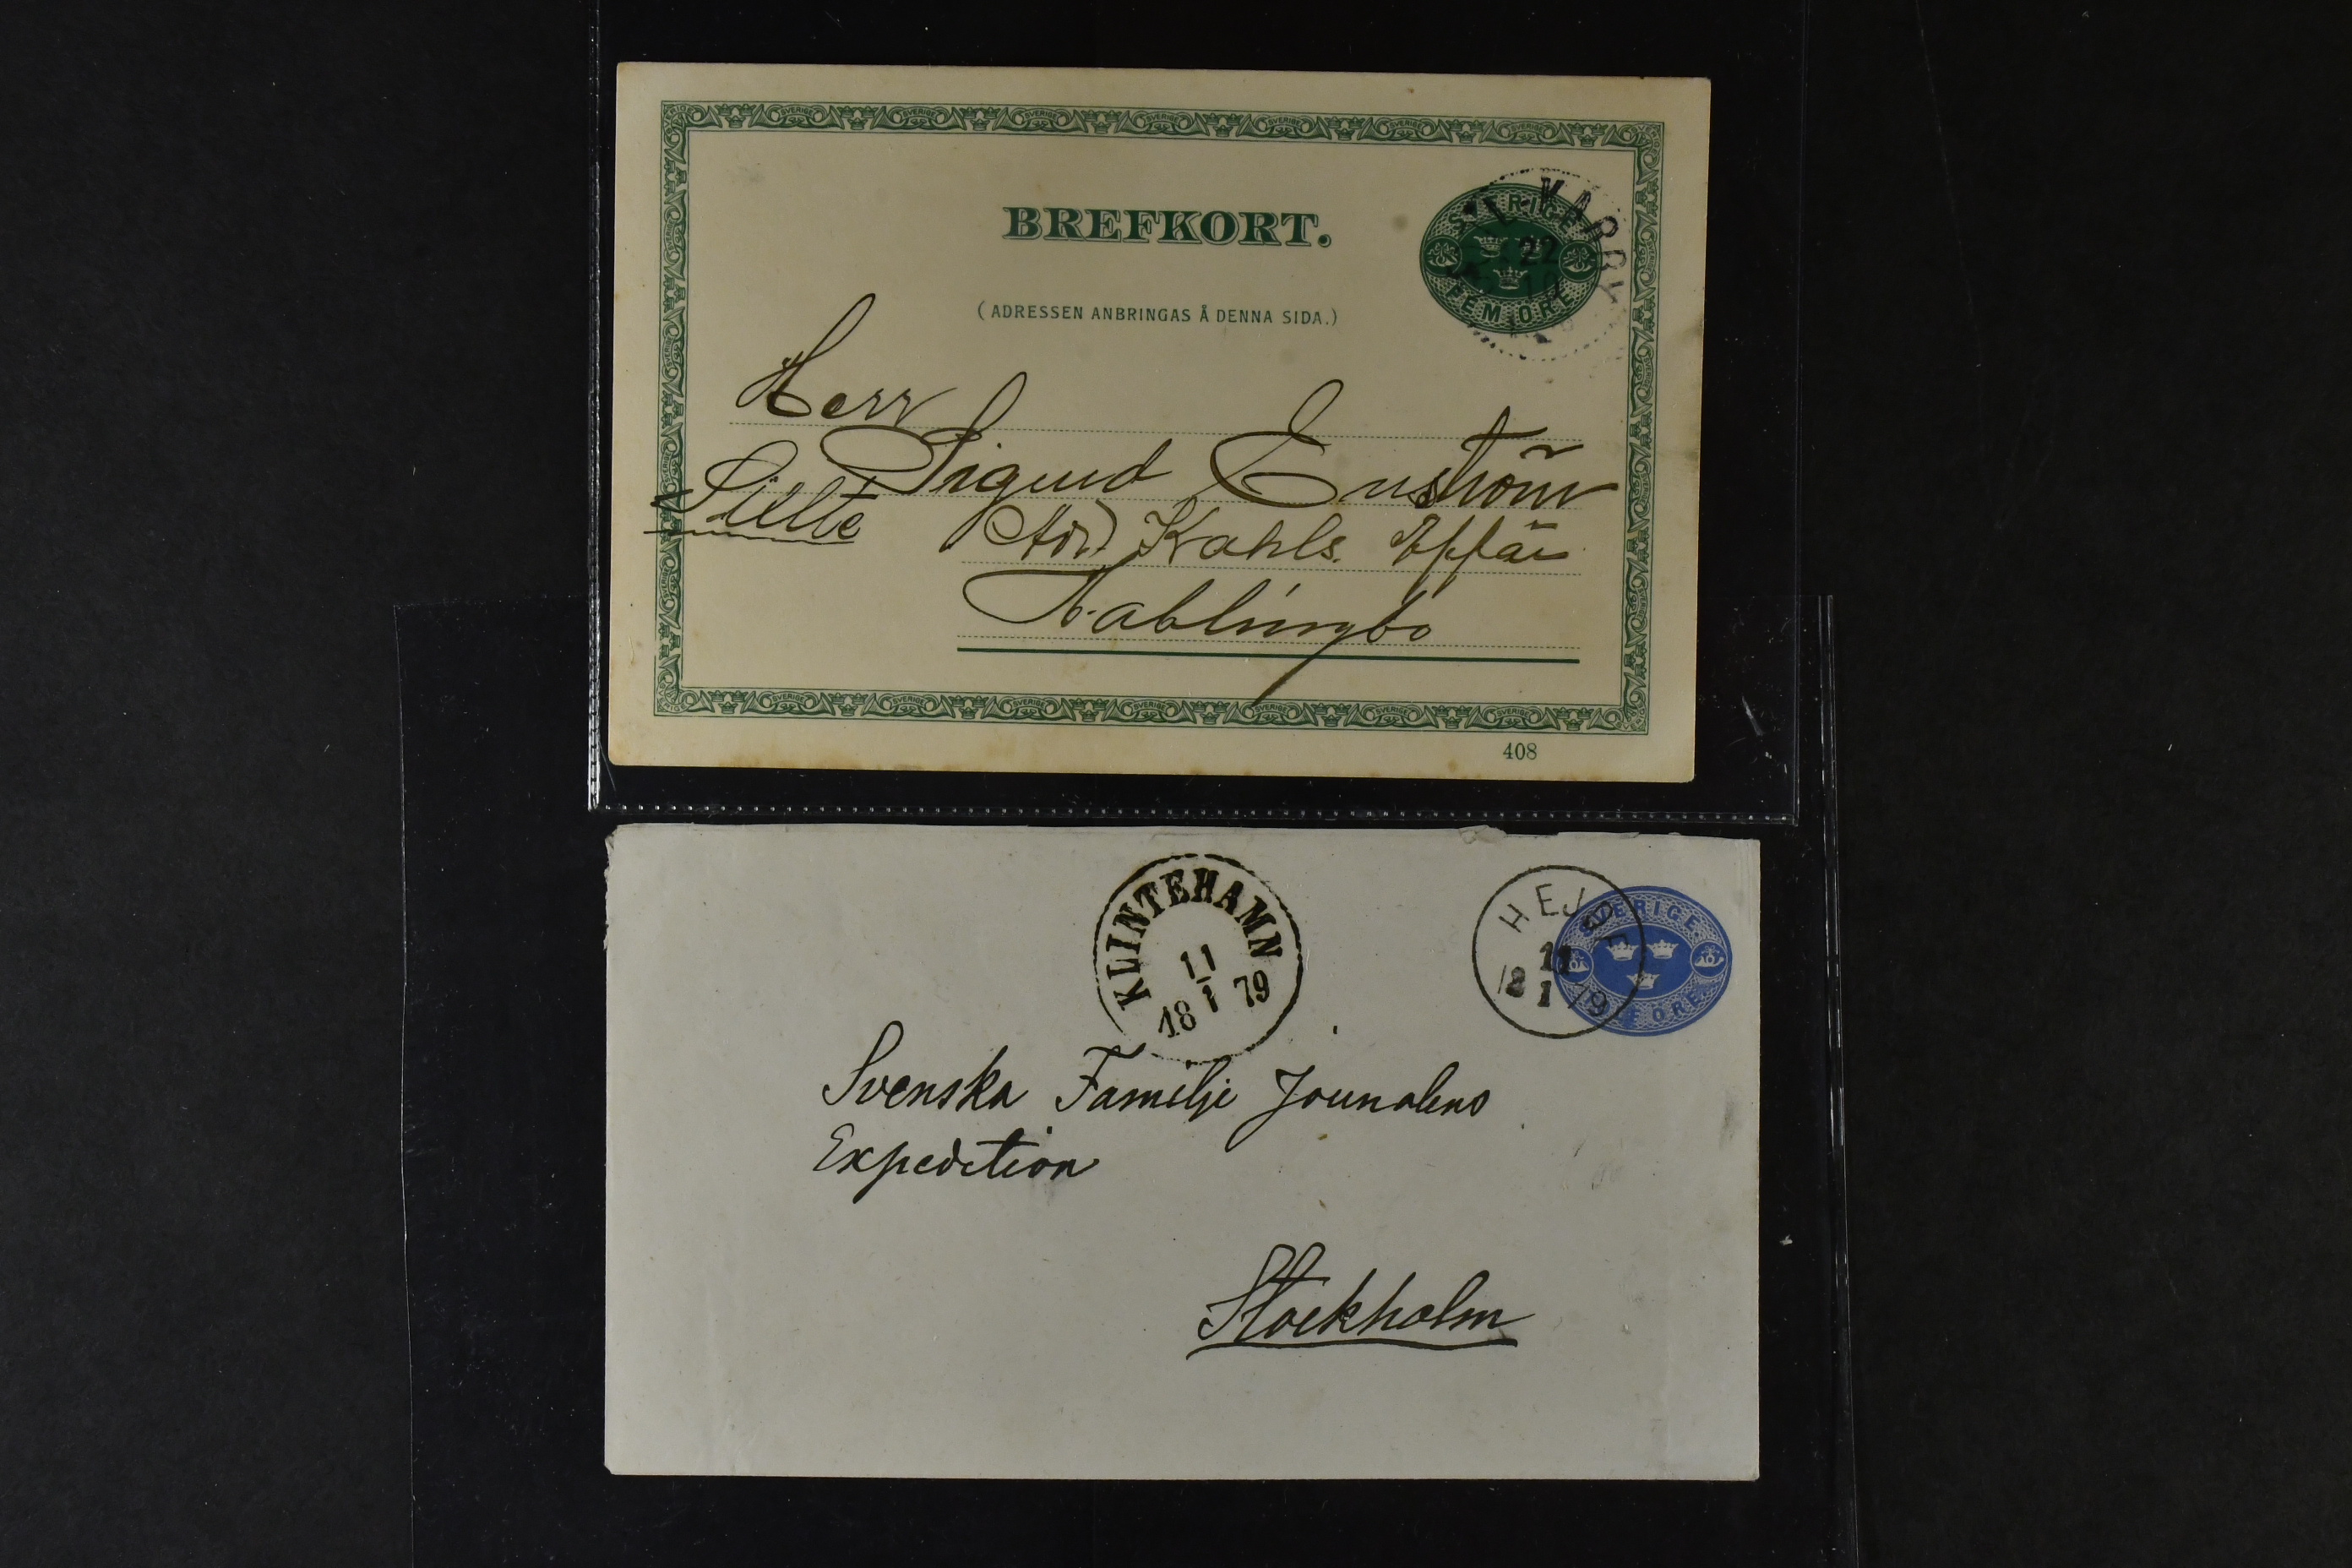 BREFKORT.
(ADRESSEN ANBRINGAS Å DENNA SIDA.)
SVERIGE
FEM ÖRE
22
Herr
Sigurd Enström
Silte
Adr. Kahls. Affär
Hablingbo
408
KLINTEHAMN
11
1
18 79
HEJDE
11
1
18 79
SVERIGE.
ÖRE
Svenska Familje Journalens
Expedition
Stockholm